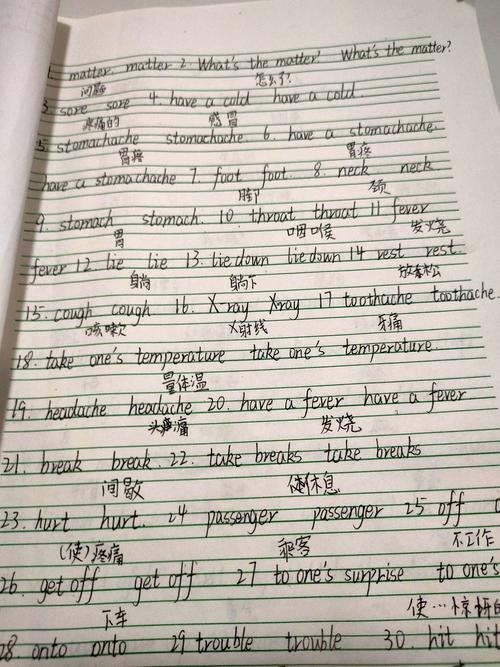 1. matter. matter 2. What's the matter? What's the matter?
问题 怎么了?
3. sore sore 4. have a cold have a cold.
疼痛的 感冒
5. stomachache stomachache. 6. have a stomachache.
胃疼 胃疼
have a stomachache 7. foot foot. 8. neck neck.
脚 颈
9. stomach stomach. 10 throat throat 11 fever
胃 咽喉 发烧
fever 12. lie lie 13. lie down lie down 14 rest rest.
躺 躺下 放松
15. cough cough. 16. X-ray X-ray 17 toothache toothache.
咳嗽 X射线 牙痛
18. take one's temperature take one's temperature.
量体温
19. headache headache 20. have a fever have a fever
头痛 发烧
21. break break. 22. take breaks take breaks
间歇 休息
23. hurt hurt. 24 passenger passenger 25 off
(使)疼痛 乘客 不工作
26. get off get off 27 to one's surprise to one's
下车 使…惊讶的
28. onto onto 29 trouble trouble 30. hit hit